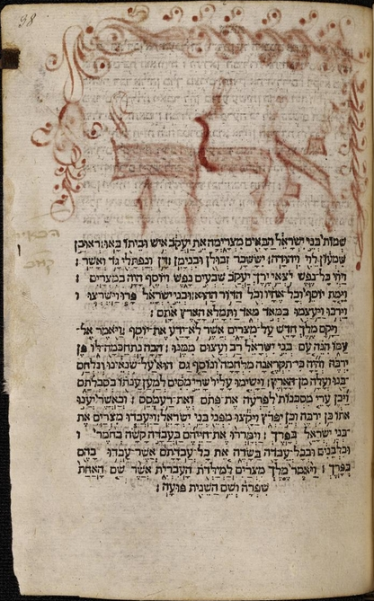 38
ואלה
שמות בני ישראל הבאים מצרימה את יעקב איש וביתו באו: ראובן
שמעון לוי ויהודה: יששכר זבולן ובנימן: דן ונפתלי גד ואשר:
ויהי כל נפש יצאי ירך יעקב שבעים נפש ויוסף היה במצרים:
וימת יוסף וכל אחיו וכל הדור ההוא: ובני ישראל פרו וישרצו
וירבו ויעצמו במאד מאד ותמלא הארץ אתם:
ויקם מלך חדש על מצרים אשר לא ידע את יוסף: ויאמר אל
עמו הנה עם בני ישראל רב ועצום ממנו: הבה נתחכמה לו פן
ירבה והיה כי תקראנה מלחמה ונוסף גם הוא על שנאינו ונלחם
בנו ועלה מן הארץ: וישימו עליו שרי מסים למען ענתו בסבלתם
ויבן ערי מסכנות לפרעה את פתם ואת רעמסס: וכאשר יענו
אתו כן ירבה וכן יפרץ ויקצו מפני בני ישראל: ויעבדו מצרים את
בני ישראל בפרך: וימררו את חייהם בעבדה קשה בחמר
ובלבנים ובכל עבדה בשדה את כל עבדתם אשר עבדו בהם
בפרך: ויאמר מלך מצרים למילדת העברית אשר שם האחת
שפרה ושם השנית פועה: